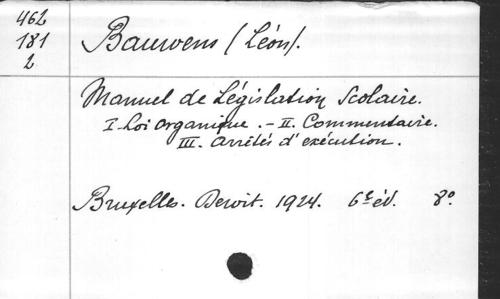 462
181
2
Bauwens (Léon).
Manuel de Législation Scolaire.
I. Loi organique. - II. Commentaire.
III. Arrêtés d'exécution.
Bruxelles. Dewit. 1924. 6e éd. 8°.